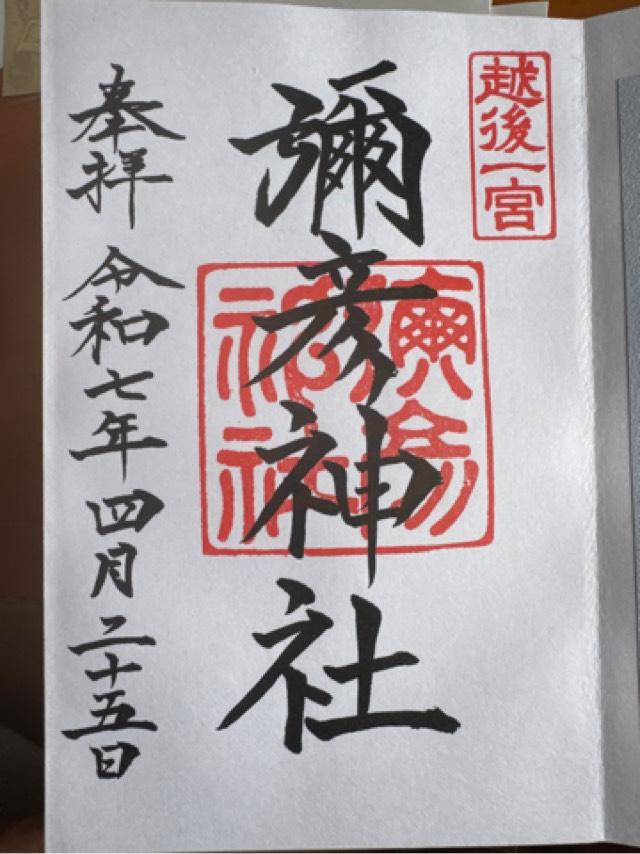 越後一宮
彌彦神社
奉拝 令和七年四月二十五日